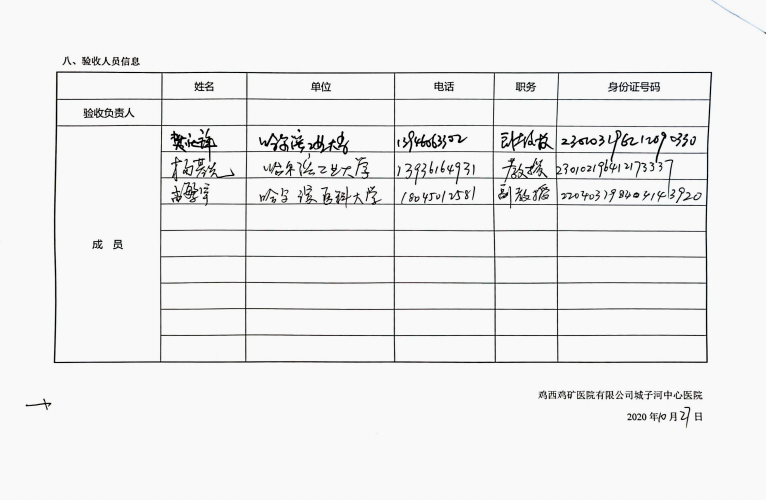 八、验收人员信息
姓名 单位 电话 职务 身份证号码
验收负责人
哈尔滨工业大学 13946063302 副教授
哈尔滨工业大学 13936164931 教授 230102196412173337
哈尔滨医科大学 18045012581 副教授 220403198404143920
成 员
鸡西鸡矿医院有限公司城子河中心医院
2020 年10 月27日